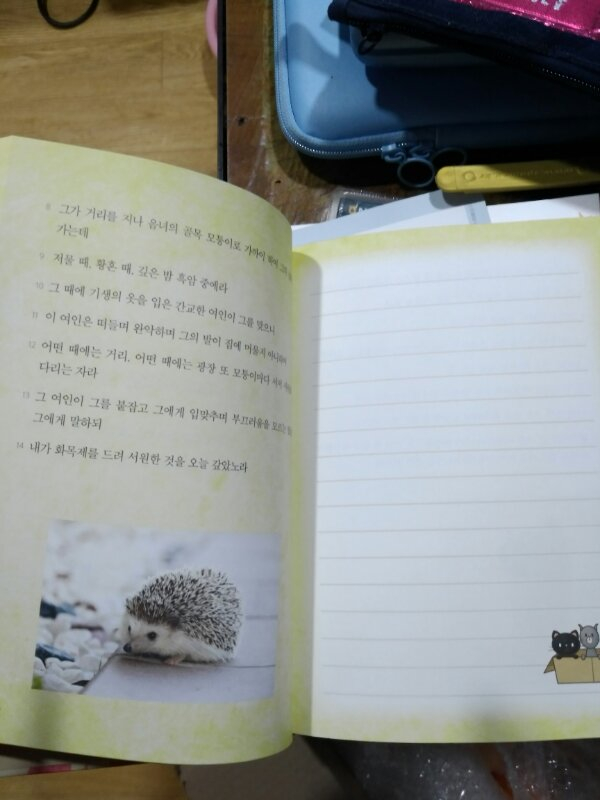 8 그가 거리를 지나 음녀의 골목 모퉁이로 가까이 하여
가는데
9 저물 때, 황혼 때, 깊은 밤 흑암 중에라
10 그 때에 기생의 옷을 입은 간교한 여인이 그를 맞으니
11 이 여인은 떠들며 완악하며 그의 발이 집에 머물지 아니하여
12 어떤 때에는 거리, 어떤 때에는 광장 또 모퉁이마다 서서
다리는 자라
13 그 여인이 그를 붙잡고 그에게 입맞추며 부끄러움을 모르는
그에게 말하되
14 내가 화목제를 드려 서원한 것을 오늘 갚았노라